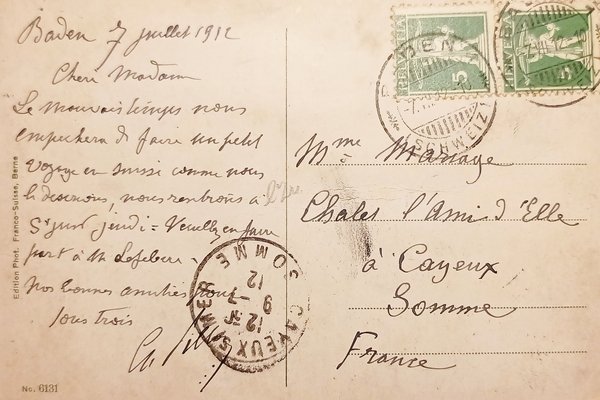 Baden 7 juillet 1912
Chère Madame
Le mauvais temps nous
empechera de faire un petit
voyage en suisse comme nous
le desirions, nous rentrons à
St just jeudi = Veuillez en faire
part à M Lefebvre -
Nos bonnes amitiés pour
tous trois
Edition Phot. Franco-Suisse, Berne
No. 6131
HELVETIA
5
HELVETIA
5
BADEN
(SCHWEIZ)
CAYEUX S MER
SOMME
12 
9 -7
12
Mme Manage
Chalet l'Ami d'Elle
à Cayeux
Somme
France